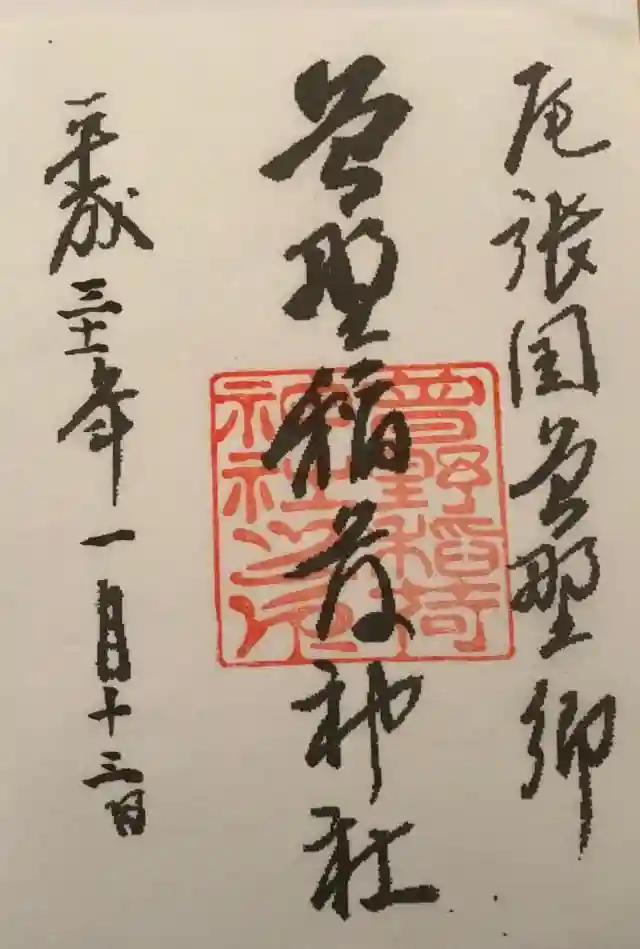 尾張国曽野郷
曽野稲荷神社
平成三十一年一月十三日
曽野稲荷
神社之印